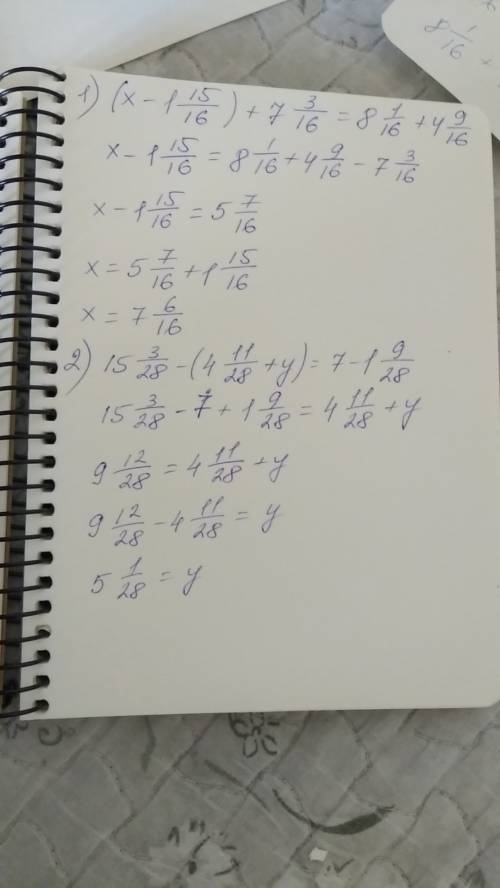 8 1/16 +
1) (x - 1 15/16) + 7 3/16 = 8 1/16 + 4 9/16
x - 1 15/16 = 8 1/16 + 4 9/16 - 7 3/16
x - 1 15/16 = 5 7/16
x = 5 7/16 + 1 15/16
x = 7 6/16
2) 15 3/28 - (4 11/28 + y) = 7 - 1 9/28
15 3/28 - 7 + 1 9/28 = 4 11/28 + y
9 12/28 = 4 11/28 + y
9 12/28 - 4 11/28 = y
5 1/28 = y